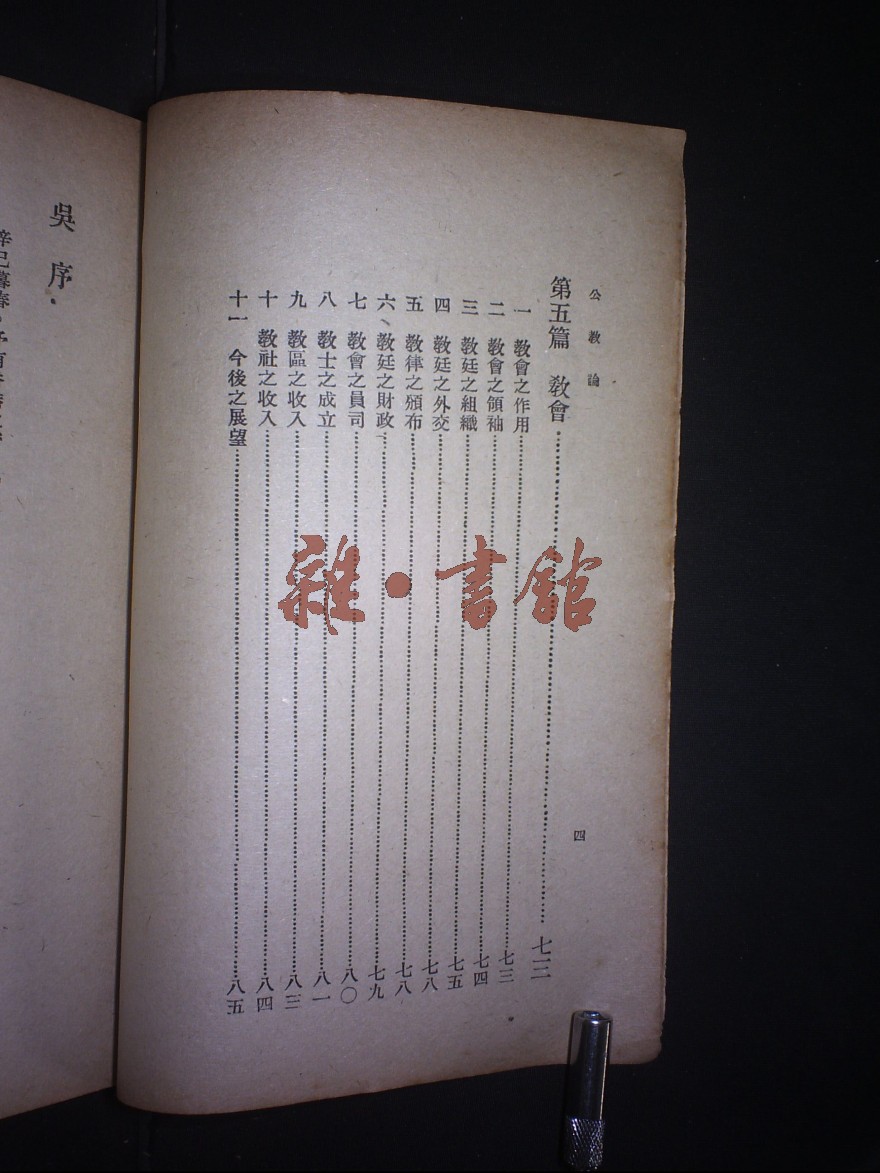 公教論
四
第五篇 教會……七三
一 教會之作用……七三
二 教會之領袖……七四
三 教廷之組織……七五
四 教廷之外交……七八
五 教律之頒布……七八
六、教廷之財政……七九
七 教會之員司……八〇
八 教士之成立……八一
九 教區之收入……八三
十 教社之收入……八四
十一 今後之展望……八五
雜·書館
吳序
辛巳暮春